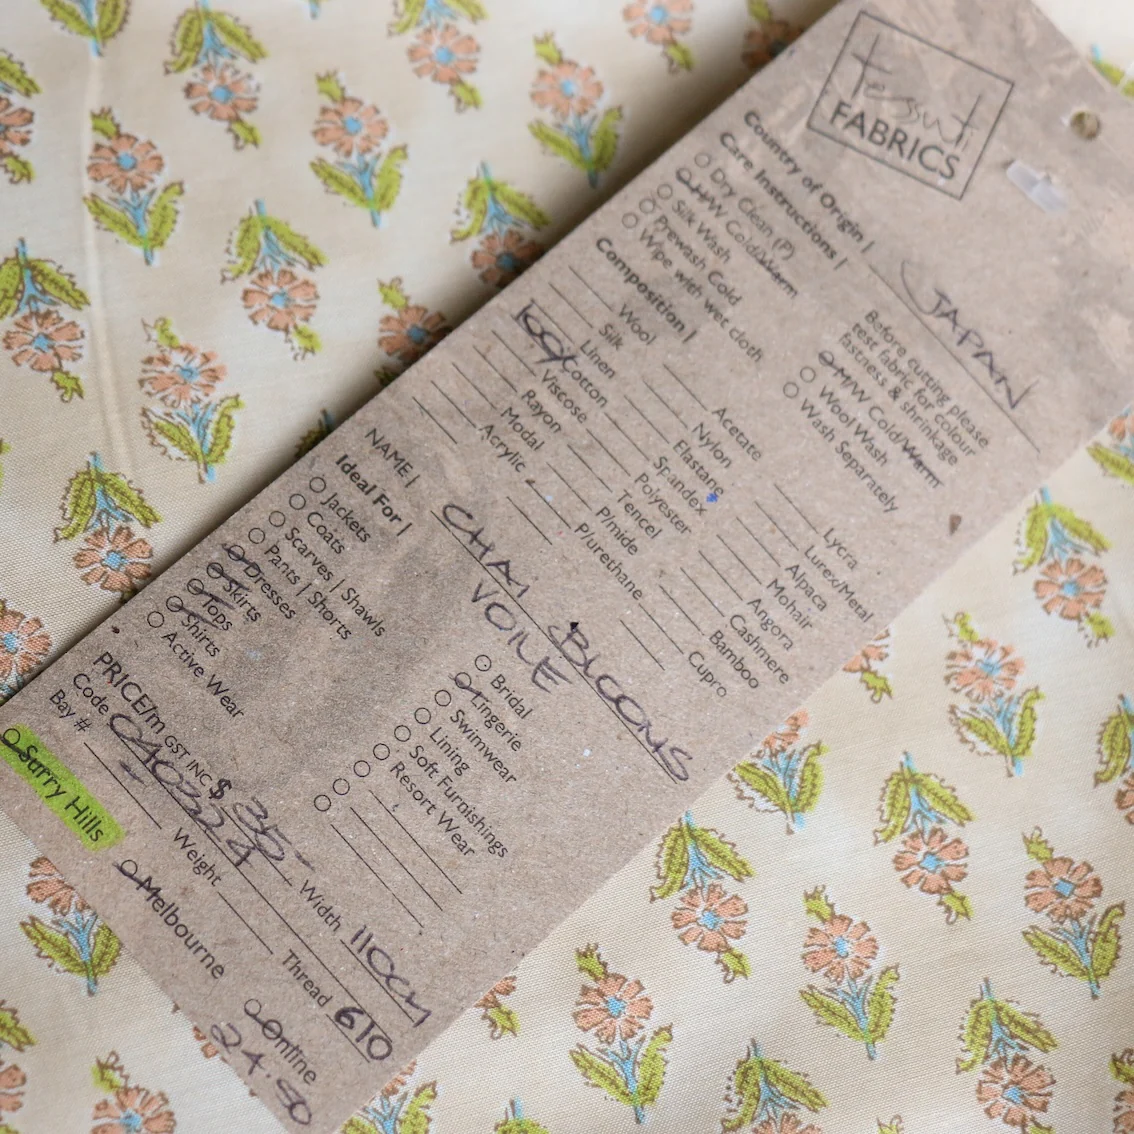 tessuti
FABRICS
Country of Origin | JAPAN
Care Instructions |
Dry Clean (P)
H/W Cold/Warm
Silk Wash
Prewash Cold
Wipe with wet cloth
Before cutting please
test fabric for colour
fastness & shrinkage
M/W Cold/Warm
Wool Wash
Wash Separately
Composition |
Wool
Silk
Linen
100% Cotton
Viscose
Rayon
Modal
Acrylic
Acetate
Nylon
Elastane
Spandex
Polyester
Tencel
P/mide
P/urethane
Lycra
Lurex/Metal
Alpaca
Mohair
Angora
Cashmere
Bamboo
Cupro
NAME | CHAI BLOOMS
VOILE
Ideal For |
Jackets
Coats
Scarves | Shawls
Pants | Shorts
Dresses
Skirts
Tops
Shirts
Active Wear
Bridal
Lingerie
Swimwear
Lining
Soft Furnishings
Resort Wear
PRICE/m GST INC $ 35- Width 110CM
Code 040324 Thread 610
Bay # Weight
Surry Hills Melbourne Online
24.50